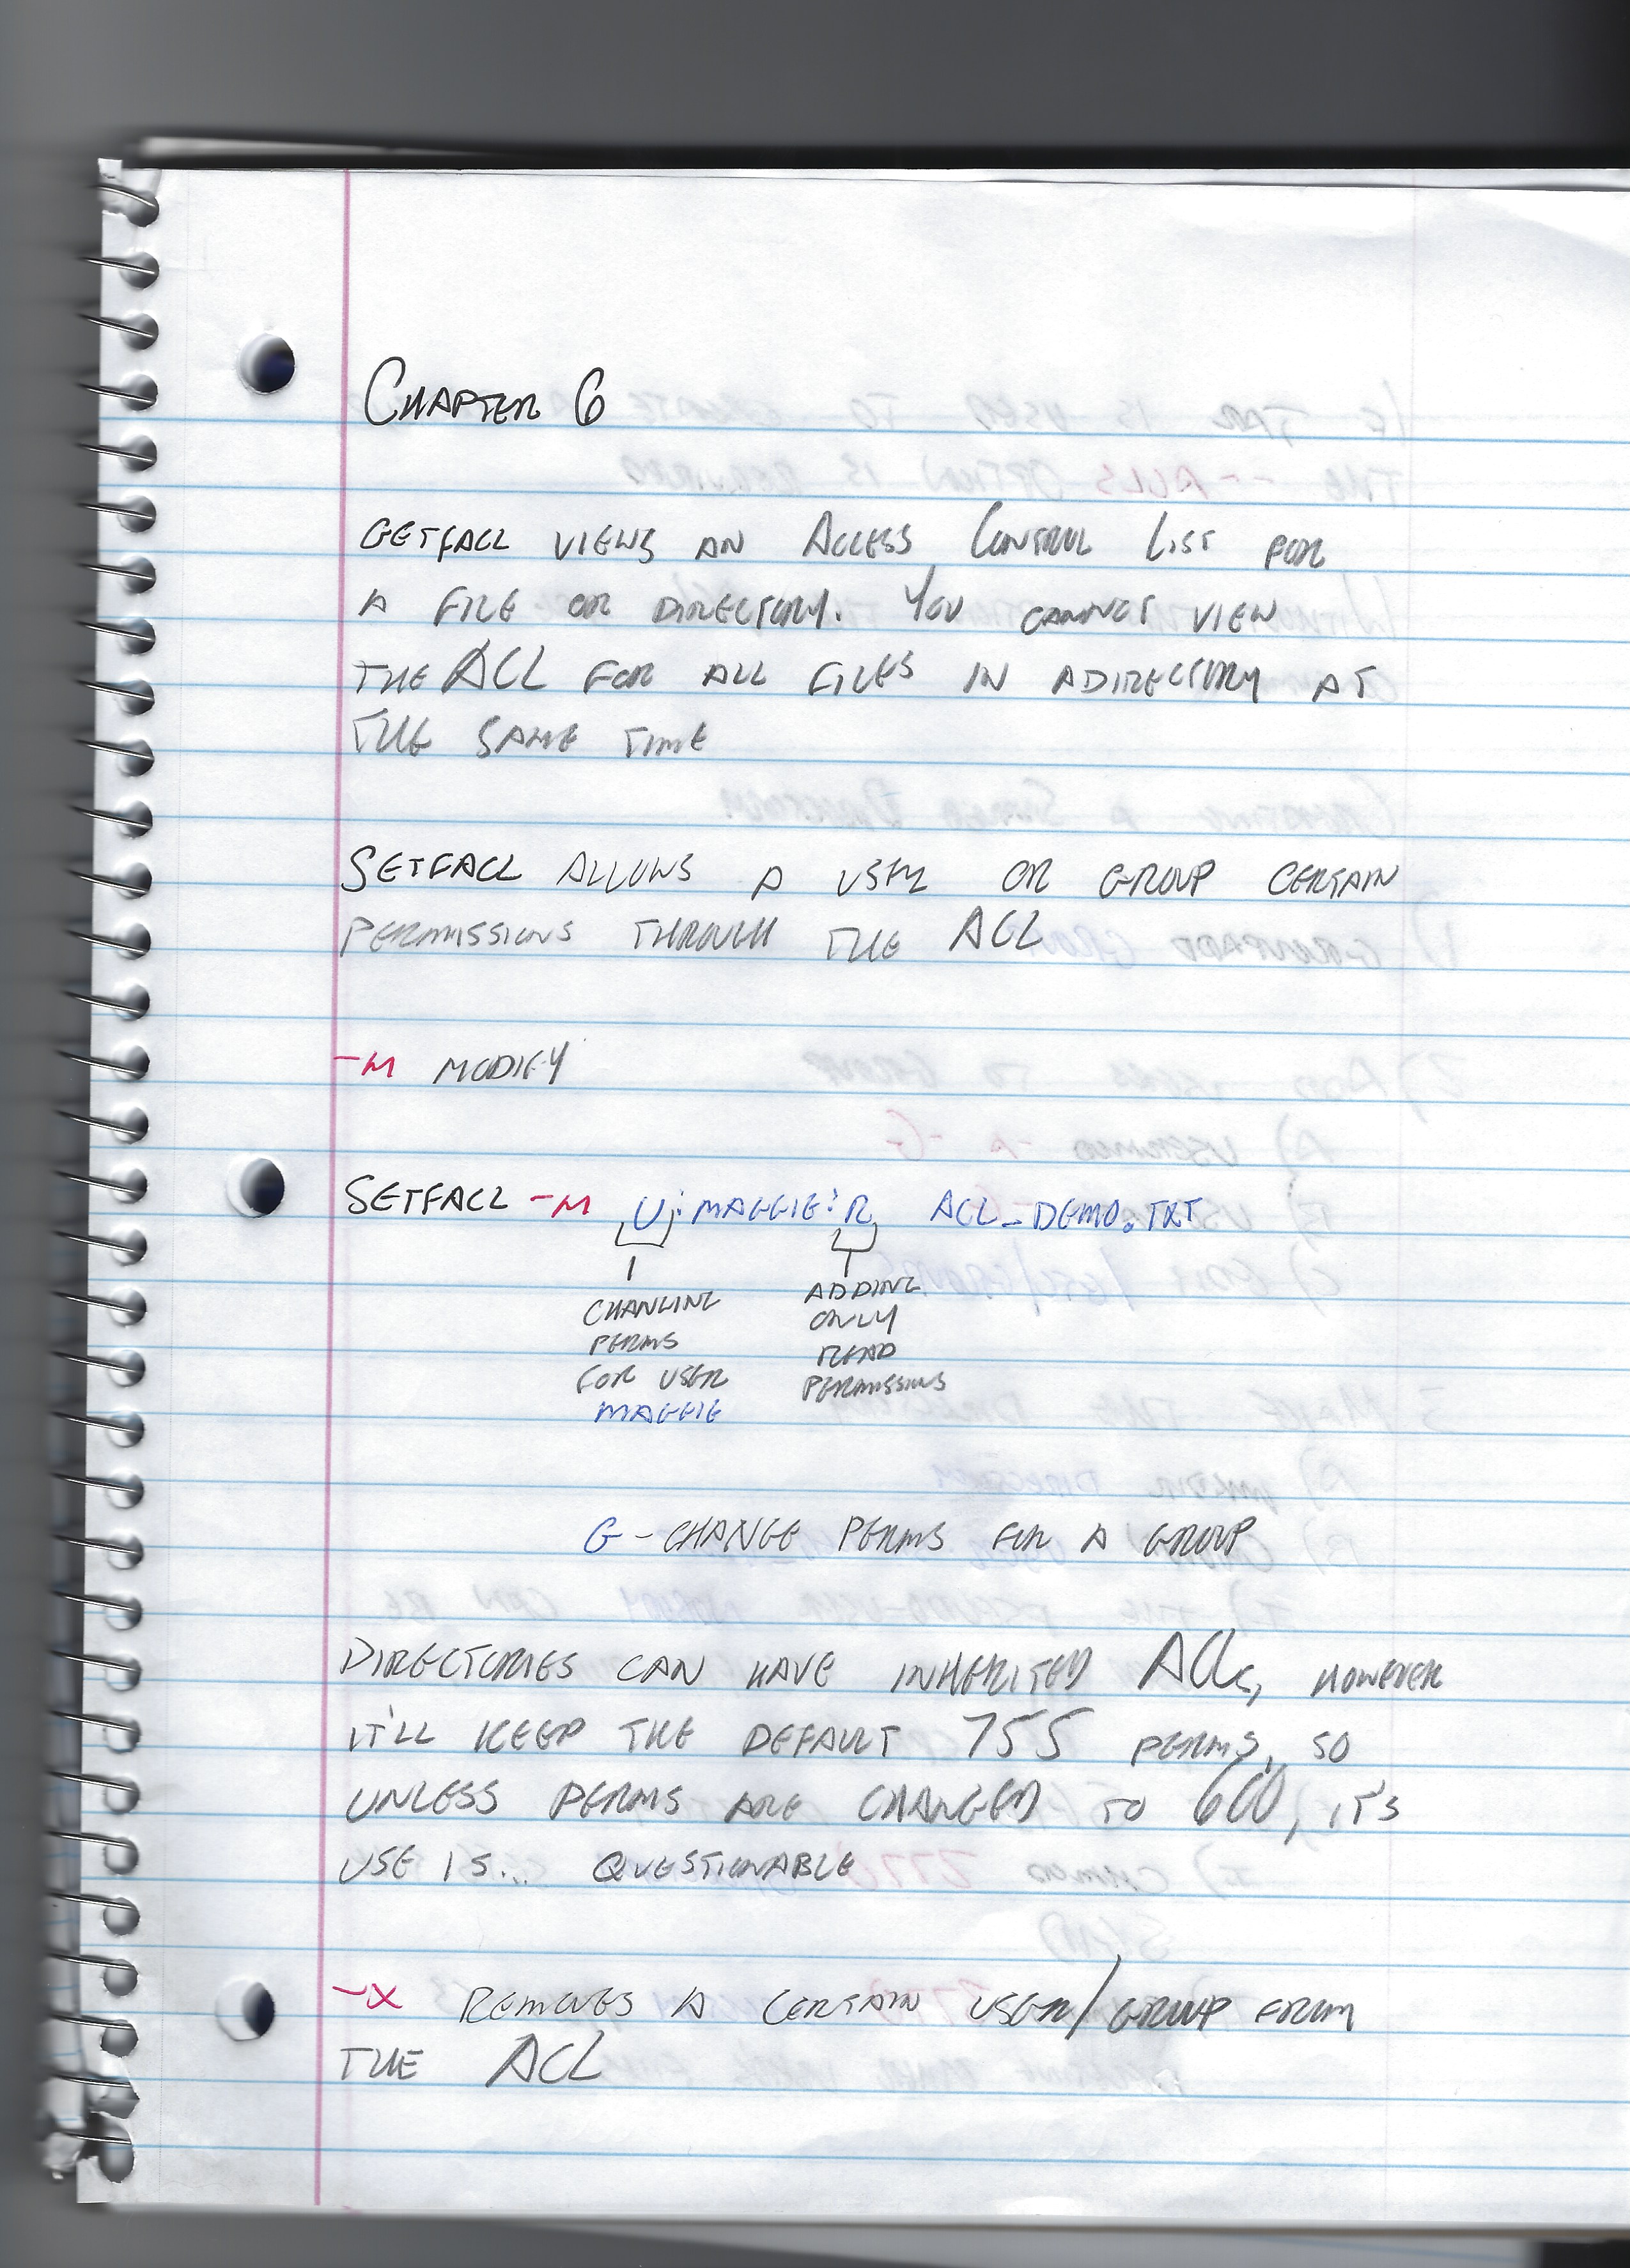 CHAPTER 6
GETFACL VIEWS AN ACCESS CONTROL LIST FOR
A FILE OR DIRECTORY. YOU CANNOT VIEW
THE ACL FOR ALL FILES IN A DIRECTORY AT
THE SAME TIME
SETFACL ALLOWS A USER OR GROUP CERTAIN
PERMISSIONS THROUGH THE ACL
-M MODIFY
SETFACL -M U:MAGGIE:R ACL_DEMO.TXT
CHANGING
PERMS
FOR USER
MAGGIE
ADDING
ONLY
READ
PERMISSIONS
G - CHANGE PERMS FOR A GROUP
DIRECTORIES CAN HAVE INHERITED ACLs, HOWEVER
IT'LL KEEP THE DEFAULT 755 PERMS, SO
UNLESS PERMS ARE CHANGED TO 600, IT'S
USE IS... QUESTIONABLE
-X REMOVES A CERTAIN USER/GROUP FROM
THE ACL